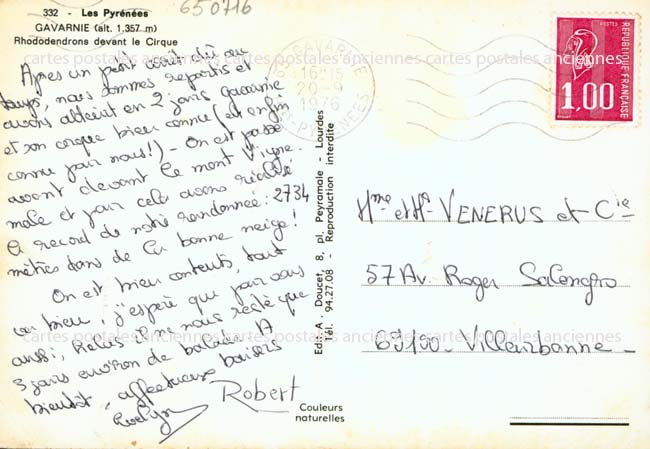 650716
332 - Les Pyrénées
GAVARNIE (alt. 1.357 m)
Rhododendrons devant le Cirque
Après un petit arrêt dû au
temps, nous sommes repartis et
avons atteint en 2 jours Gavarnie
et son cirque bien connu (et enfin
connu par nous!) - On est passé
avant devant le mont Vigne-
male et pour cela avons réalisé
le record de notre randonnée: 2734
mètres dans de la bonne neige!
On est bien contents, tout
va bien, j'espère que pour vous
aussi, Hélas il ne nous reste que
3 jours environ de balade. A
bientôt, affectueux baisers
Evelyn
Robert
Couleurs
naturelles
Edit. A. Doucet, 8, pl. Peyramale - Lourdes
Tél. 94.27.08 - Reproduction interdite
GAVARNIE
16-15
20-9
1976
PYRENEES
POSTES
REPUBLIQUE FRANÇAISE
1,00
Mme et Mr VENERUS et Cie
57 Av. Roger Salengro
69100 - Villeurbanne -
cartes postales anciennes cartes postales anciennes cartes postales anciennes
cartes postales anciennes cartes postales anciennes cartes postales anciennes